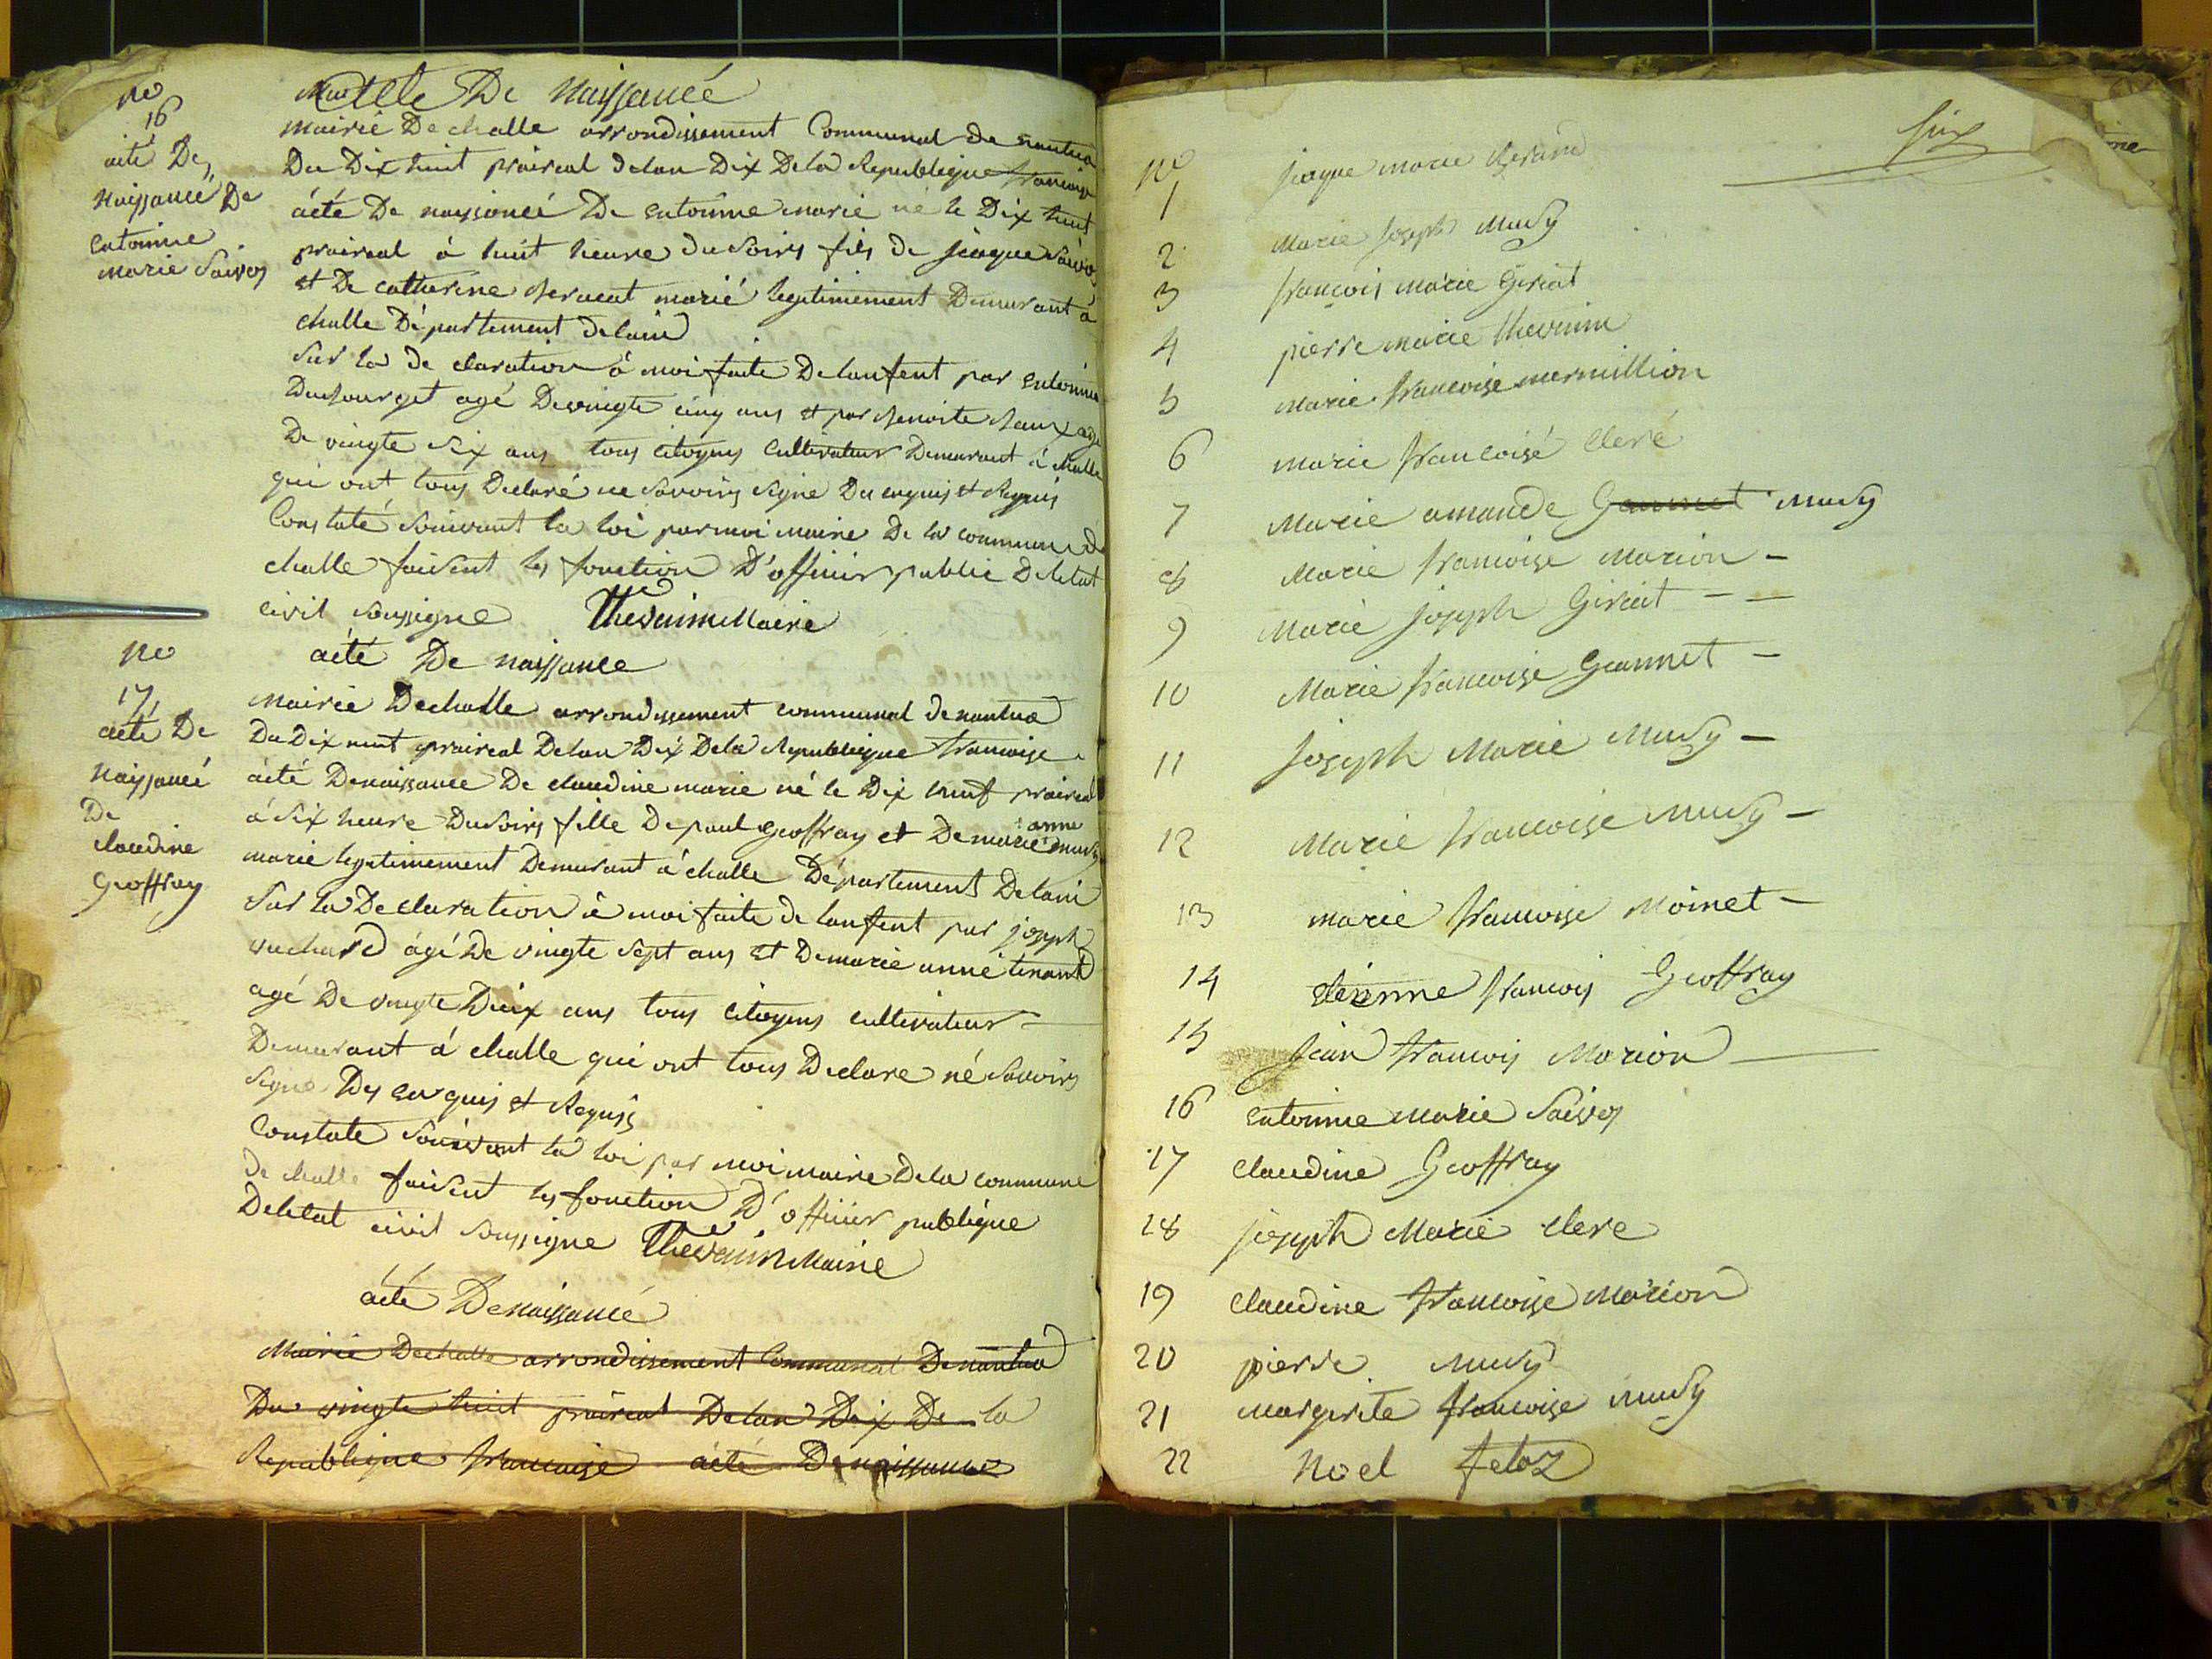 no
16
acté De
Naissancé De
entoinne
marie Saivos
Actte De Naissancé
Mairié De challe arrondissement Communal de nantua
Du Dix huit prairéal delan Dix De la Republique francoise
acté De naissancé De entoinne marie né le Dix huit
prairéal á huit heure du Soirs fils de jiaque Saivos
et De catherine marié legitimement Demurant á
challe Département delain
Sur la de claration á moi faite De lanfent par entoinne
agé De vingte cinq ans et par
De vingte Six ans tous citoyens cultivateur Demurant á challe
qui ont tous Declaré ne Savoirs Signe De enquis et Requis
Constaté Souivant la loi par moi maire De la commune de
challe faisent les fonction D'officier public Deletat
civil Soussigne Thevenin Maire
no
17
acté De
Naissancé
De
claudine
Geoffray
acté De naissance
Mairie Dechalle arrondissement communal de nantua
Du Dix neuf prairéal Delan Dix Dela Republique francoise
acté Denaissance De claudine marie né le Dix neuf prairéal
á Six heure Du Soirs fille De paul Geoffray et De marie anne musy
marie legitimement Demurant á challe Département Delain
Sur la Declaration á moi faite de lanfent par joseph
vuchard agé De vingte Sept ans et De marie anne tenand
agé De vingte Dieix ans tous citoyens cultivateur
Demurant á challe qui ont tous Declare né Savoirs
Signe Des enquis et Requis
Constate Souivant la loi par moi maire De la commune
de challe faisent les fonction D'officier publique
Deletat civil Soussigne Thevenin Maire
acté Denaissancé
Mairié Dechalle arrondissement Communal De nantua
Du vingte huit prairéal Delan Dix De la
Republique francaise acté De naissance
Six
no
1 jiaque marie
2 Marie Joseph Musy
3 francois marie Giriat
4 pierre marie thevenin
5 Marie francoise mermillion
6 marie francoisé cleré
7 Marie amande Gannet Musy
8 Marie francoise Marion -
9 Marie joseph Giriat - -
10 Marie francoise Gannet -
11 Joseph Marie Musy -
12 Marie francoise Musy -
13 marie francoise Moinet -
14 etienne francois Geoffray
15 Jean francois Marion
16 entoinne Marie Saivos
17 Claudine Geoffray
18 joseph Marie clere
19 Claudine francoise Marion
20 pierre Musy
21 Margerite francoise Musy
22 Noel feloz